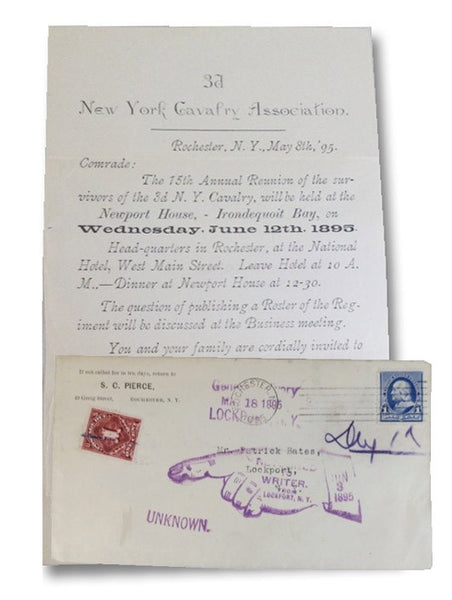 3d
New York Cavalry Association.
Rochester, N. Y., May 8th, '95.
Comrade:
The 15th Annual Reunion of the sur-
vivors of the 3d N. Y. Cavalry, will be held at the
Newport House, - Irondequoit Bay, on
Wednesday, June 12th. 1895.
Head-quarters in Rochester, at the National
Hotel, West Main Street. Leave Hotel at 10 A.
M.,—Dinner at Newport House at 12-30.
The question of publishing a Roster of the Reg-
iment will be discussed at the Business meeting.
You and your family are cordially invited to
If not called for in ten days, return to
S. C. PIERCE,
ROCHESTER, N. Y.
MAY 18 1895
LOCKPORT, N.Y.
1
Mr. Patrick Bates,
Lockport,
WRITER.
LOCKPORT, N. Y.
3
1895
UNKNOWN.